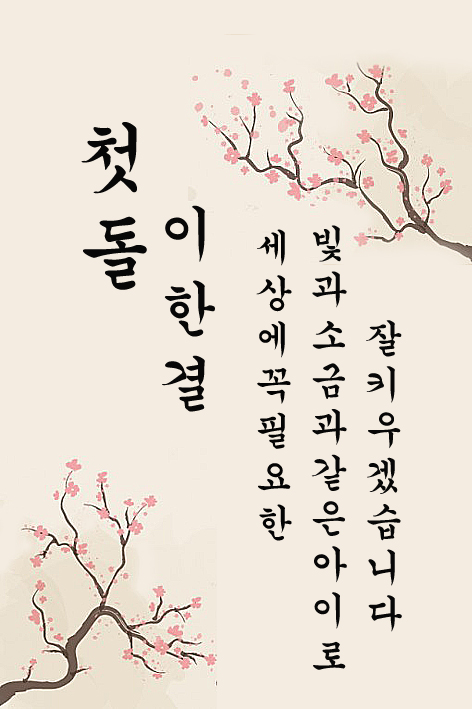 첫돌
이한결
세상에꼭필요한
빛과소금과같은아이로
잘키우겠습니다